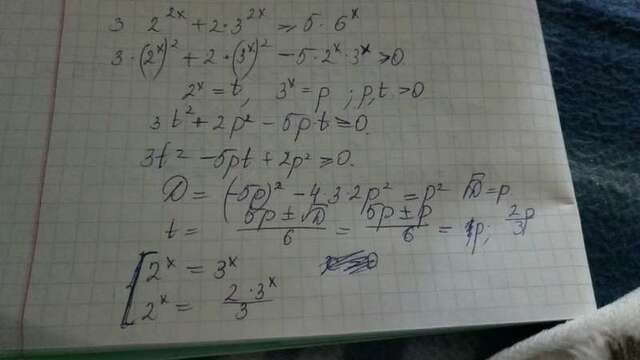 3 2^{2x} + 2·3^{2x} ≥ 5·6^x
3·(2^x)^2 + 2·(3^x)^2 − 5·2^x·3^x ≥ 0
2^x = t, 3^x = p ; p,t > 0
3t^2 + 2p^2 − 5pt ≥ 0.
3t^2 − 5pt + 2p^2 ≥ 0.
D = (−5p)^2 − 4·3·2p^2 = p^2 √D = p
t = (5p ± √D)/6 = (5p ± p)/6 = p; 2/3 p
[ 2^x = 3^x
2^x = (2·3^x)/3